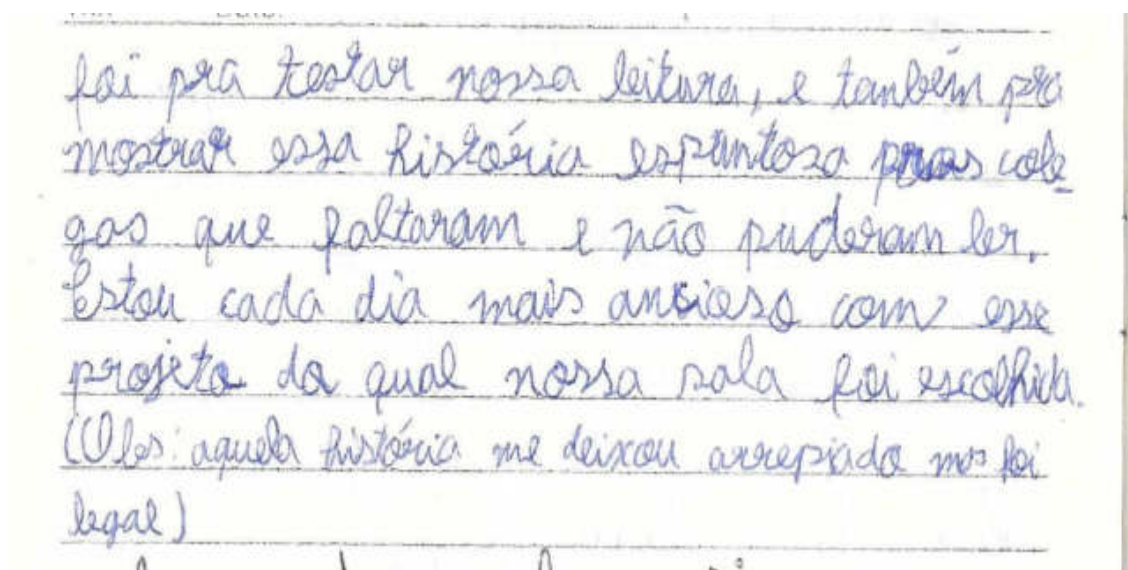 foi pra testar nossa leitura, e tanbém pra
mostrar essa história espantosa pros cole
gas que faltaram e não puderam ler.
Estou cada dia mais ancioso com esse
projeto da qual nossa sala foi escolhida.
(Obs: aquela história me deixou arrepiado mas foi
legal)